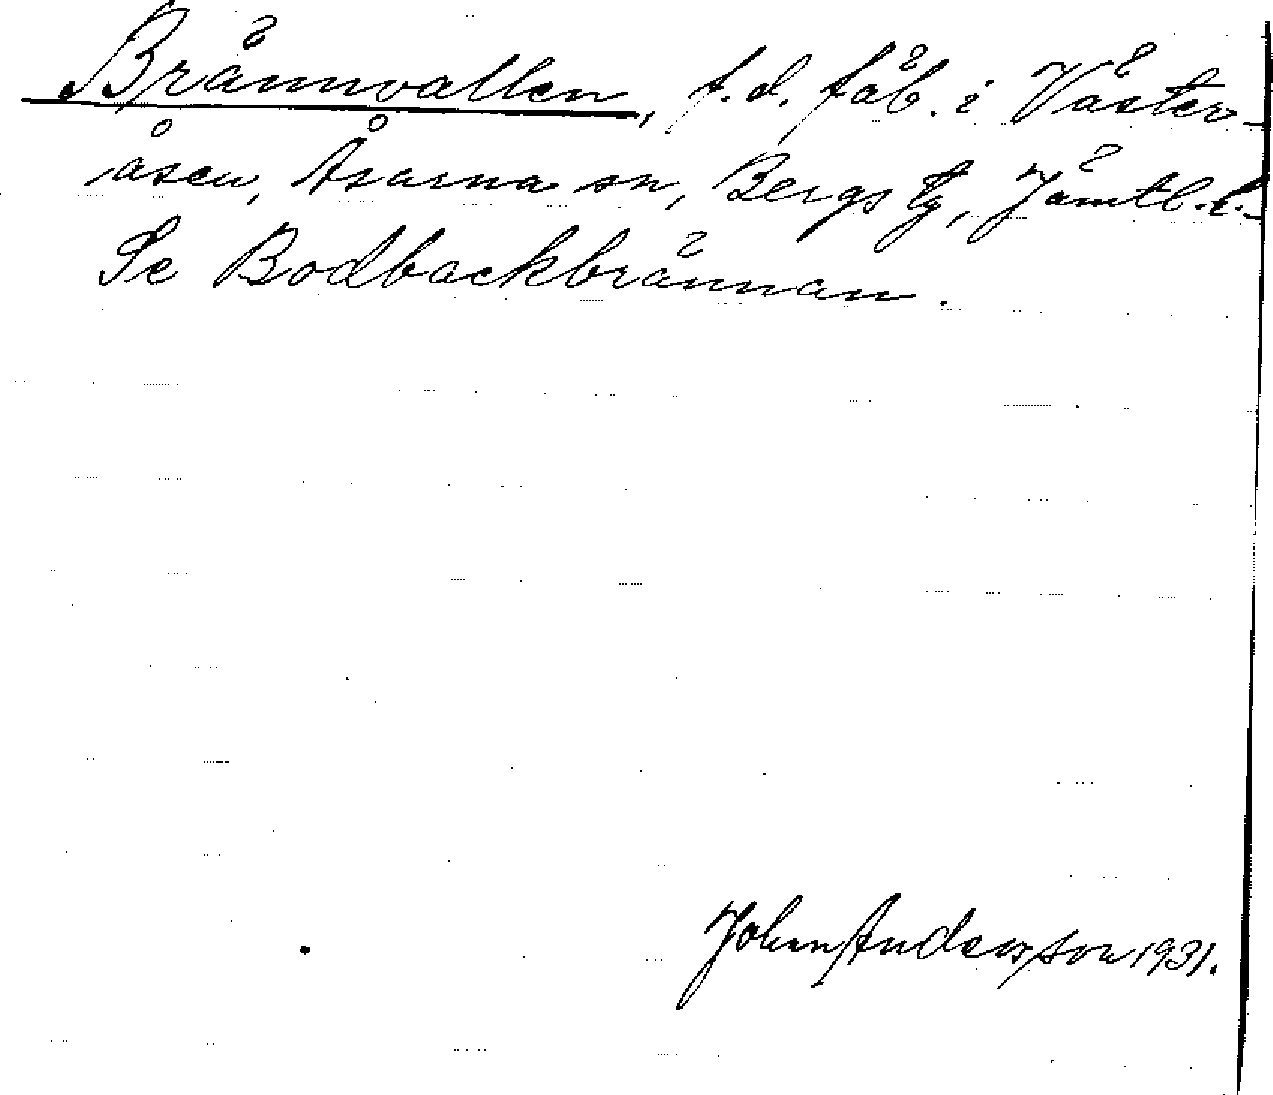 Brännvallen, f.d. fäb. i Väster-
åsen, Åsarna sn, Bergs tg, Jämtl. l.
Se Bodbackbrännan.
John Andersson 1931.